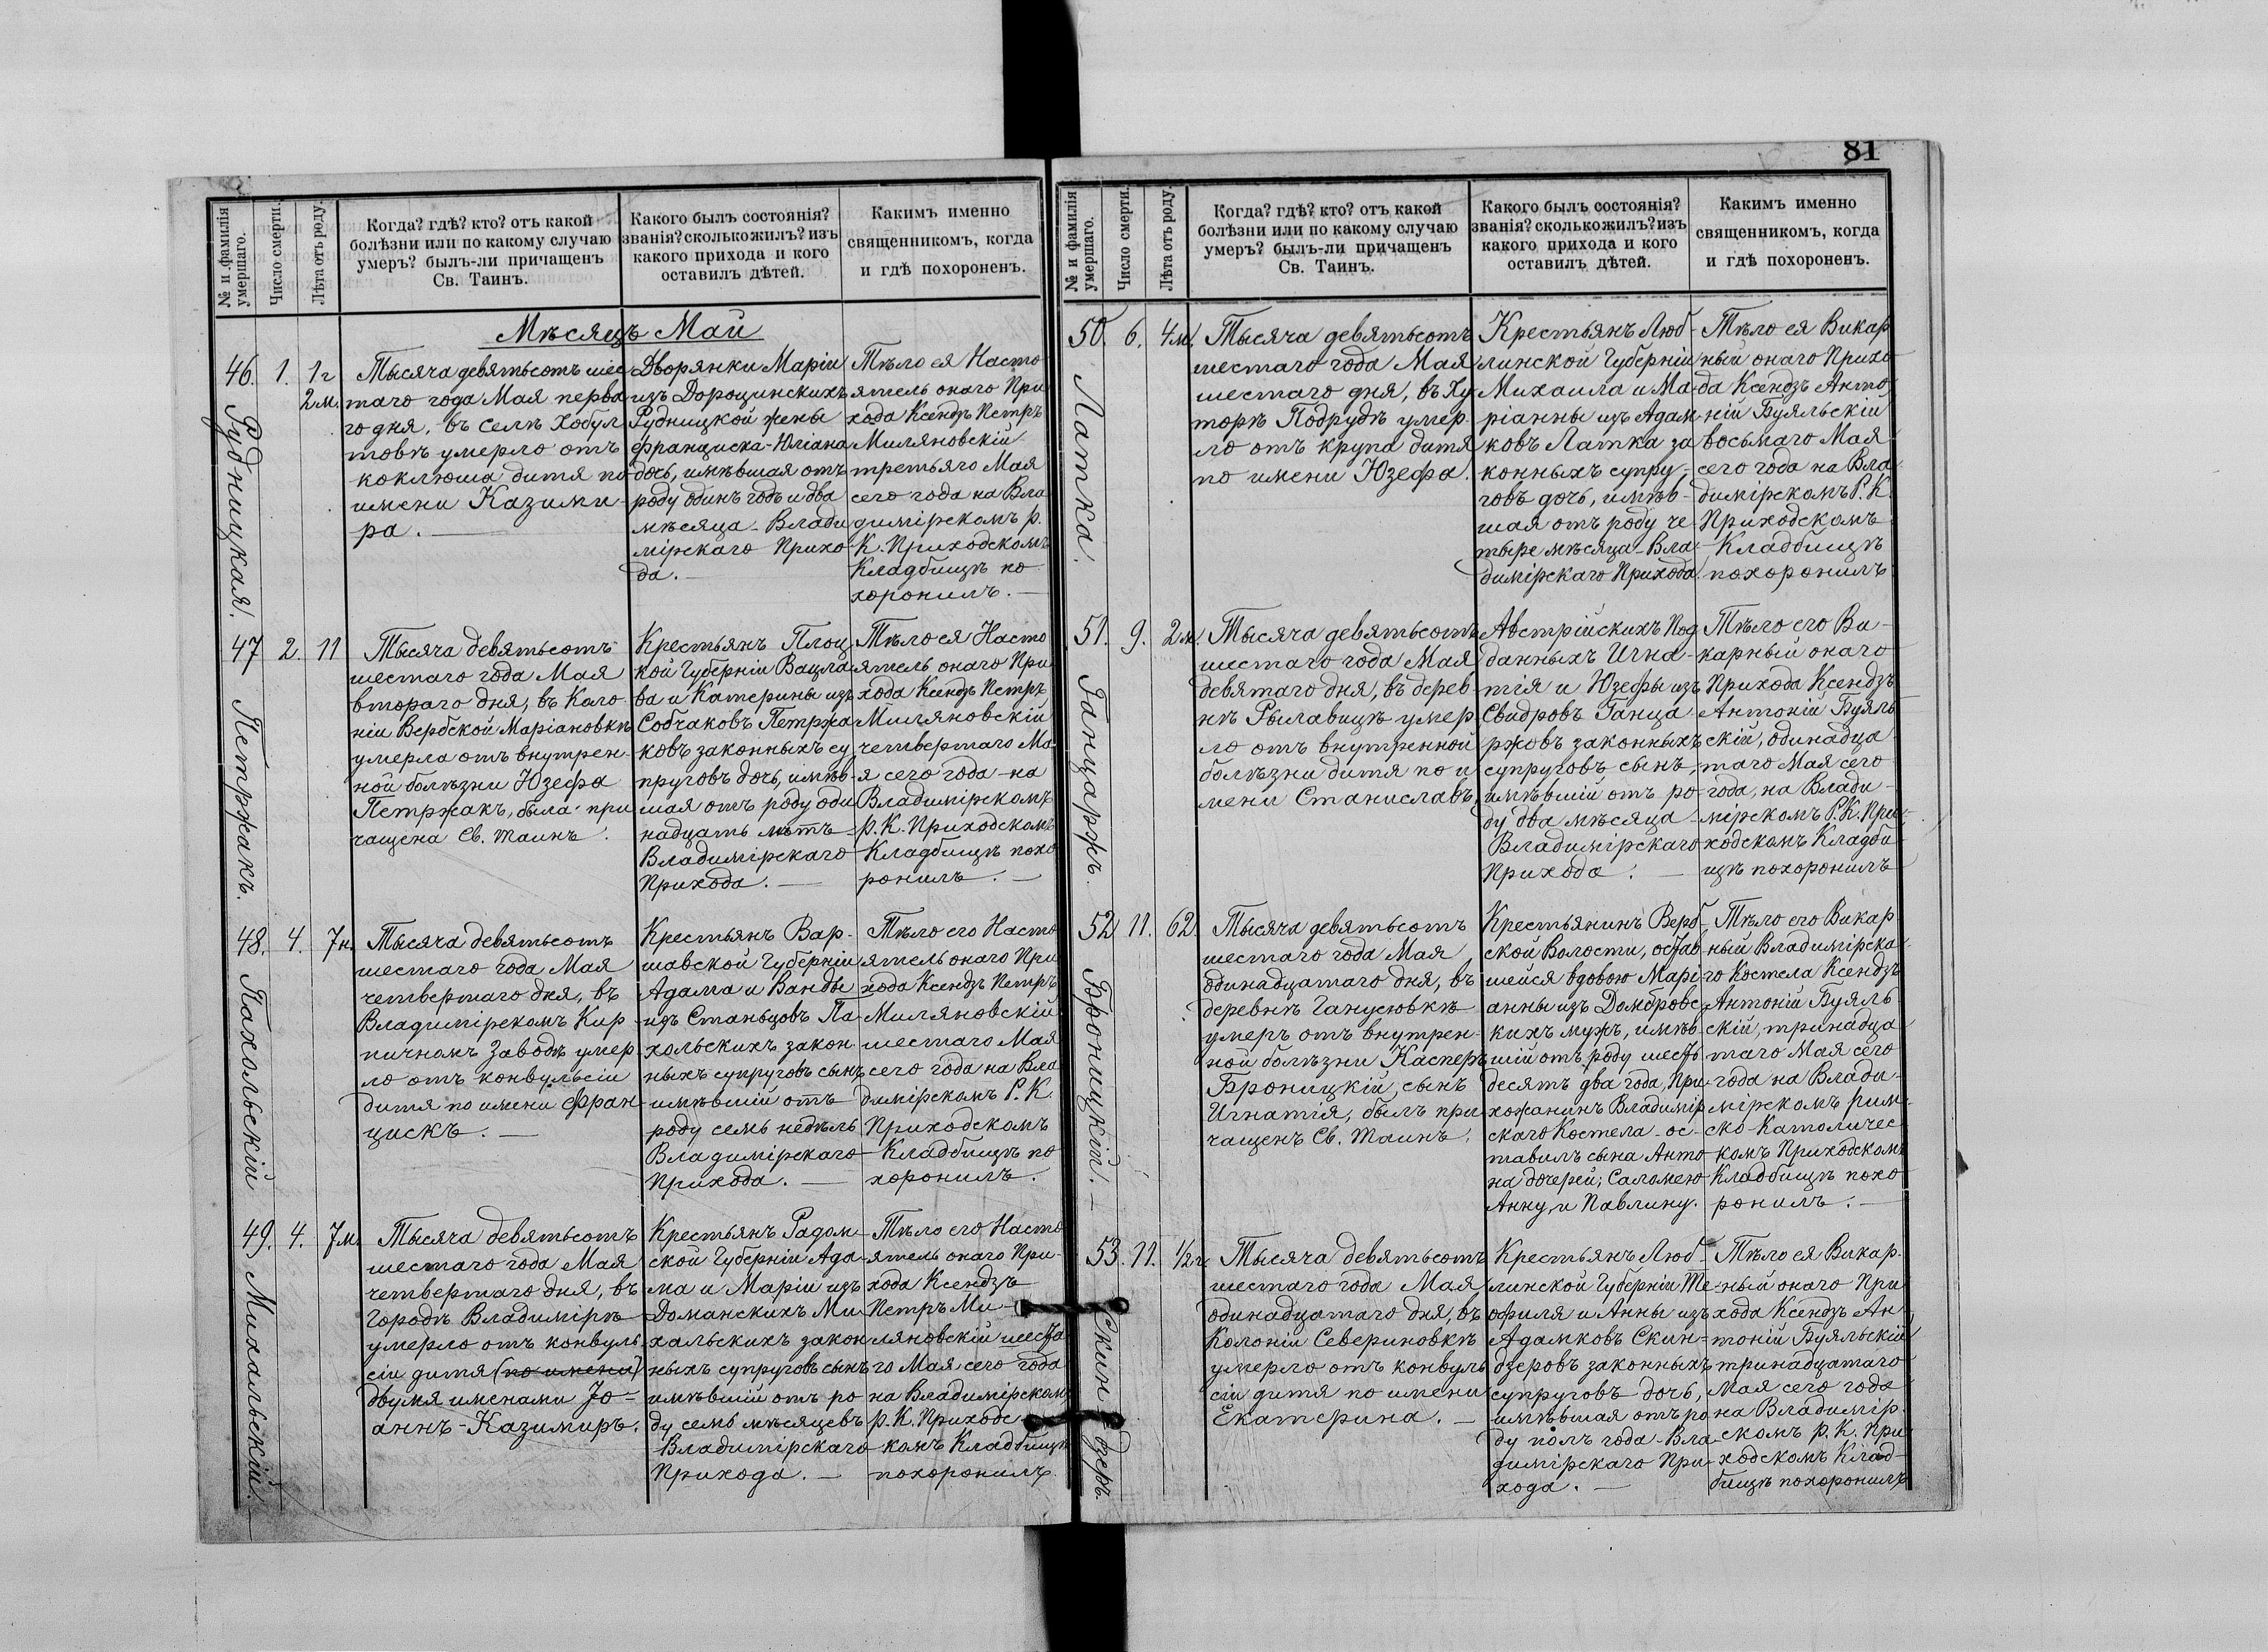 81
№ и фамилія
умершаго.
Число смерти.
Лѣта отъ роду.
Когда? гдѣ? кто? отъ какой
болѣзни или по какому случаю
умеръ? былъ-ли причащенъ
Св. Таинъ.
Какого былъ состоянія?
званія? сколько жилъ? изъ
какого прихода и кого
оставилъ дѣтей.
Какимъ именно
священникомъ, когда
и гдѣ похороненъ.
Мѣсяцъ Май
46.
Рудницкая.
1.
1г
2м.
Тысяча девятьсотъ шес
таго года Мая перва
го дня, въ селѣ Хобул
товѣ умерло отъ
коклюша дитя по
имени Казими-
ра.
Дворянки Маріи
изъ Дорощинскихъ
Рудницкой жены
Франциска-Юліана
дочь, имѣвшая отъ
роду одинъ годъ и два
мѣсяца - Влади
мірскаго Прихо
да.
Тѣло ея Насто
ятель онаго При
хода Ксендзъ Петръ
Миляновскій
третьяго Мая
сего года на Вла
димірскомъ р.
К. Приходскомъ
Кладбищѣ по
хоронилъ.
47
Петржакъ.
2.
11
Тысяча девятьсотъ
шестаго года Мая
втораго дня, въ Коло
ніи Вербской Маріановкѣ
умерла отъ внутрен
ной болѣзни Юзефа
Петржакъ, была при
чащена Св. Таинъ.
Крестьянъ Плоц
кой Губерніи Вацла
ва и Катерины изъ
Собчаковъ Петржа
ковъ законныхъ су
пруговъ дочь, имѣв-
шая отъ роду оди
надцать лѣтъ -
Владимірскаго
Прихода.
Тѣло ея Насто
ятель онаго При
хода Ксендзъ Петръ
Миляновскій
четвертаго Ма-
я сего года на
Владимірскомъ
р. К. Приходскомъ
Кладбищѣ похо
ронилъ.
48.
Пахольскій
4.
7н.
Тысяча девятьсотъ
шестаго года Мая
четвертаго дня, въ
Владимірскомъ Кир
пичномъ Заводѣ умер
ло отъ конвульсіи
дитя по имени Фран
цискъ.
Крестьянъ Вар-
шавской Губерніи
Адама и Ванды
изъ Станьцовъ Па-
хольскихъ закон
ныхъ супруговъ сынъ
имѣвшій отъ
роду семь недѣль
Владимірскаго
Прихода.
Тѣло его Насто
ятель онаго При
хода Ксендзъ Петръ
Миляновскій
шестаго Мая
сего года на Вла
димірскомъ Р. К.
Приходскомъ
Кладбищѣ по
хоронилъ.
49.
Михальскій.
4.
7м.
Тысяча девятьсотъ
шестаго года Мая
четвертаго дня, въ
Городѣ Владимірѣ
умерло отъ конвуль
сіи дитя (по имени)
двумя именами Іо-
аннъ-Казимиръ.
Крестьянъ Радом
ской Губерніи Ада-
ма и Маріи изъ
Доманскихъ Ми
хальскихъ закон
ныхъ супруговъ сынъ
имѣвшій отъ ро
ду семь мѣсяцевъ
Владимірскаго
Прихода.
Тѣло его Насто
ятель онаго При-
хода Ксендзъ
Петръ Ми-
ляновскій шеста
го Мая сего года
на Владимірском
р. К. Приходс
комъ Кладбищѣ
похоронилъ.
№ и фамилія
умершаго.
Число смерти.
Лѣта отъ роду.
Когда? гдѣ? кто? отъ какой
болѣзни или по какому случаю
умеръ? былъ-ли причащенъ
Св. Таинъ.
Какого былъ состоянія?
званія? сколько жилъ? изъ
какого прихода и кого
оставилъ дѣтей.
Какимъ именно
священникомъ, когда
и гдѣ похороненъ.
50.
Латка.
6.
4м.
Тысяча девятьсотъ
шестаго года Мая
шестаго дня, въ Ху
торѣ Подрудѣ умер-
ло отъ крупа дитя
по имени Юзефа.
Крестьянъ Люб-
линской Губерніи
Михаила и Ма-
ріанны изъ Адам
ковъ Латка за
конныхъ супру-
говъ дочь, имѣв-
шая отъ роду че
тыре мѣсяца - Вла
димірскаго Прихода.
Тѣло ея Викар
ный онаго Прихо
да Ксендзъ Анто
ній Буяльскій
восьмаго Мая
сего года на Вла
димірскомъ Р. К.
Приходскомъ
Кладбищѣ
похоронилъ
51.
Ганцаржъ.
9.
2м.
Тысяча девятьсотъ
шестаго года Мая
девятаго дня, въ дерев-
нѣ Рылавицѣ умер
ло отъ внутренной
болѣзни дитя по и
мени Станиславъ,
Австрійскихъ Под
данныхъ Игна-
тія и Юзефы изъ
Свидровъ Ганца
ржовъ законныхъ
супруговъ сынъ,
имѣвшій отъ ро-
ду два мѣсяца -
Владимірскаго
Прихода.
Тѣло его Ви-
карный онаго
Прихода Ксендзъ
Антоній Буяль
скій, одинадца
таго Мая сего
года, на Влади-
мірскомъ Р. К. При-
ходскомъ Кладби-
щѣ похоронилъ
52
Броницкій.
11.
62.
Тысяча девятьсотъ
шестаго года Мая
одинадцатаго дня, въ
деревнѣ Ганусювкѣ
умеръ отъ внутрен-
ной болѣзни Касперъ
Броницкій, сынъ
Игнатія, былъ при
чащенъ Св. Таинъ.
Крестьянинъ Верб
ской Волости, остав
шейся вдовою Марі-
анны изъ Домбровс
кихъ мужъ, имѣв
шій отъ роду шесть
десятъ два года, При
хожанинъ Владимір
скаго Костела - ос-
тавилъ сына Анто
на дочерей; Саломею
Анну, и Павлину.
Тѣло его Викар
ный Владимірска
го Костела Ксендзъ
Антоній Буяль
скій, тринадца
таго Мая сего
года на Влади-
мірскомъ рим-
ско-Католичес
комъ Приходскомъ
Кладбищѣ похо
ронилъ.
53.
Скиндзеръ.
11.
1/2г
Тысяча девятьсотъ
шестаго года Мая
одинадцатаго дня, въ
Колоніи Севериновкѣ
умерло отъ конвуль
сіи дитя по имени
Екатерина.
Крестьянъ Люб-
линской Губерніи Те-
офиля и Анны изъ
Адамковъ Скин-
дзеровъ законныхъ
супруговъ дочь,
имѣвшая отъ ро
ду полъ года - Вла
димірскаго При
хода.
Тѣло ея Викар-
ный онаго При
хода Ксендзъ Ан-
тоній Буяльскій
тринадцатаго
Мая сего года
на Владимір-
скомъ р. К. При
ходскомъ Клад-
бищѣ похоронилъ